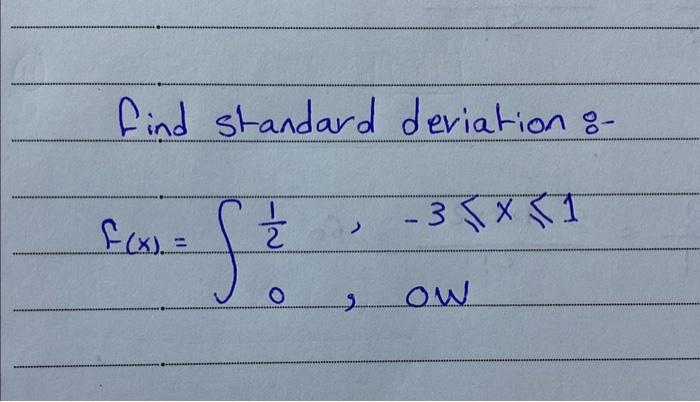 find standard deviation :-
f(x) = ∫ 1/2 , -3 ≤ x ≤ 1
0 , ow